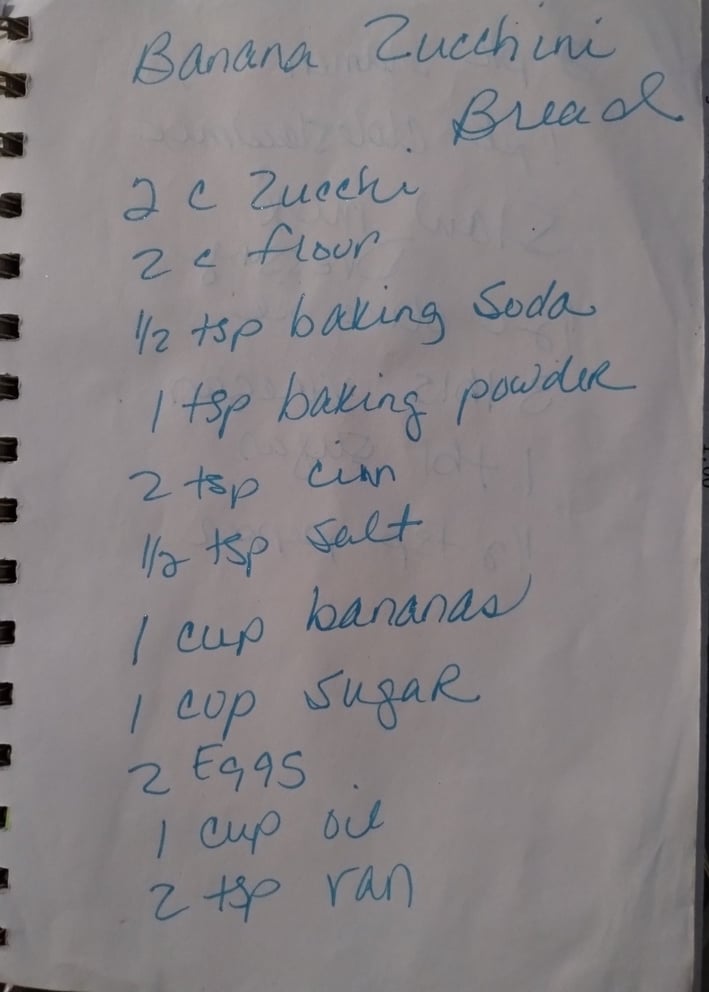 Banana Zucchini
Bread
2 c Zucchi
2 c flour
1/2 tsp baking soda
1 tsp baking powder
2 tsp cinn
1/2 tsp salt
1 cup bananas
1 cup sugar
2 Eggs
1 cup oil
2 tsp van